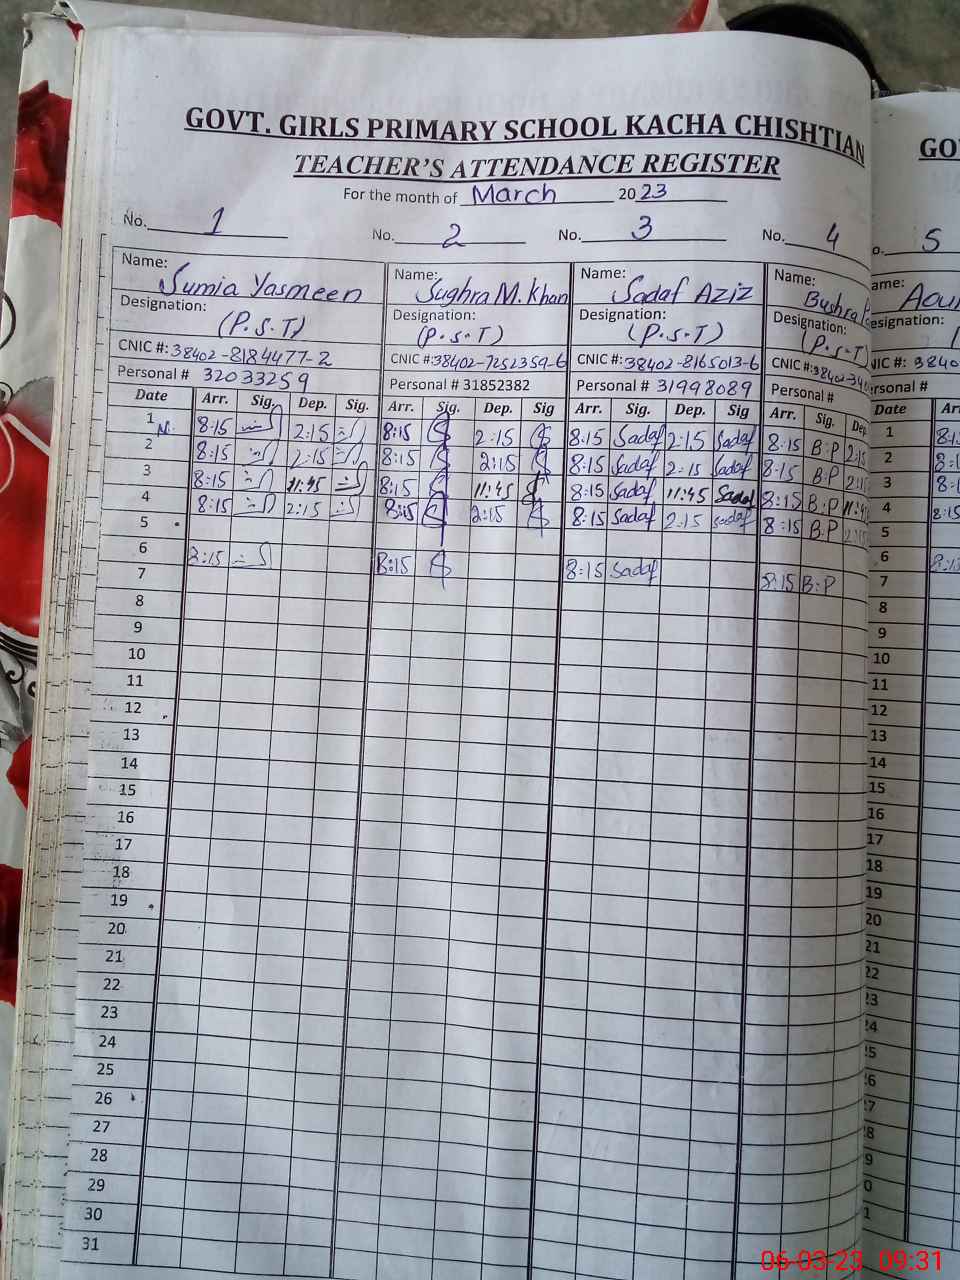 GOVT. GIRLS PRIMARY SCHOOL KACHA CHISHTIAN
TEACHER'S ATTENDANCE REGISTER
For the month of March 2023
No. 1 No. 2 No. 3 No. 4
Name: Sumia Yasmeen Name: Sughra M. Khan Name: Sadaf Aziz Name: Bushra
Designation: (P.S.T) Designation: (P.S.T) Designation: (P.S.T) Designation: (P.S.T)
CNIC #: 38402-8184477-2 CNIC #: 38402-7252359-6 CNIC #: 38402-8165013-6 CNIC #:
Personal # 32033259 Personal # 31852382 Personal # 31998089 Personal #
Date Arr. Sig. Dep. Sig. Arr. Sig. Dep. Sig Arr. Sig. Dep. Sig Arr. Sig. Dep
1 8:15 2:15 8:15 2:15 8:15 Sadaf 2:15 Sadaf 8:15 B.P 2:15
2 8:15 2:15 8:15 2:15 8:15 Sadaf 2:15 Sadaf 8:15 B.P 2:15
3 8:15 11:45 8:15 11:45 8:15 Sadaf 11:45 Sadaf 8:15 B.P
4 8:15 2:15 8:15 2:15 8:15 Sadaf 2:15 Sadaf 8:15 B.P
5
6 8:15 8:15 Sadaf 8:15 B.P
7
8
9
10
11
12
13
14
15
16
17
18
19
20
21
22
23
24
25
26
27
28
29
30
31
GO
5
Designation:
CNIC #: 3840
Personal #
Date Arr
1
2
3
4 8:15
5
6
7
8
9
10
11
12
13
14
15
16
17
18
19
20
21
22
23
24
06-03-23 09:31